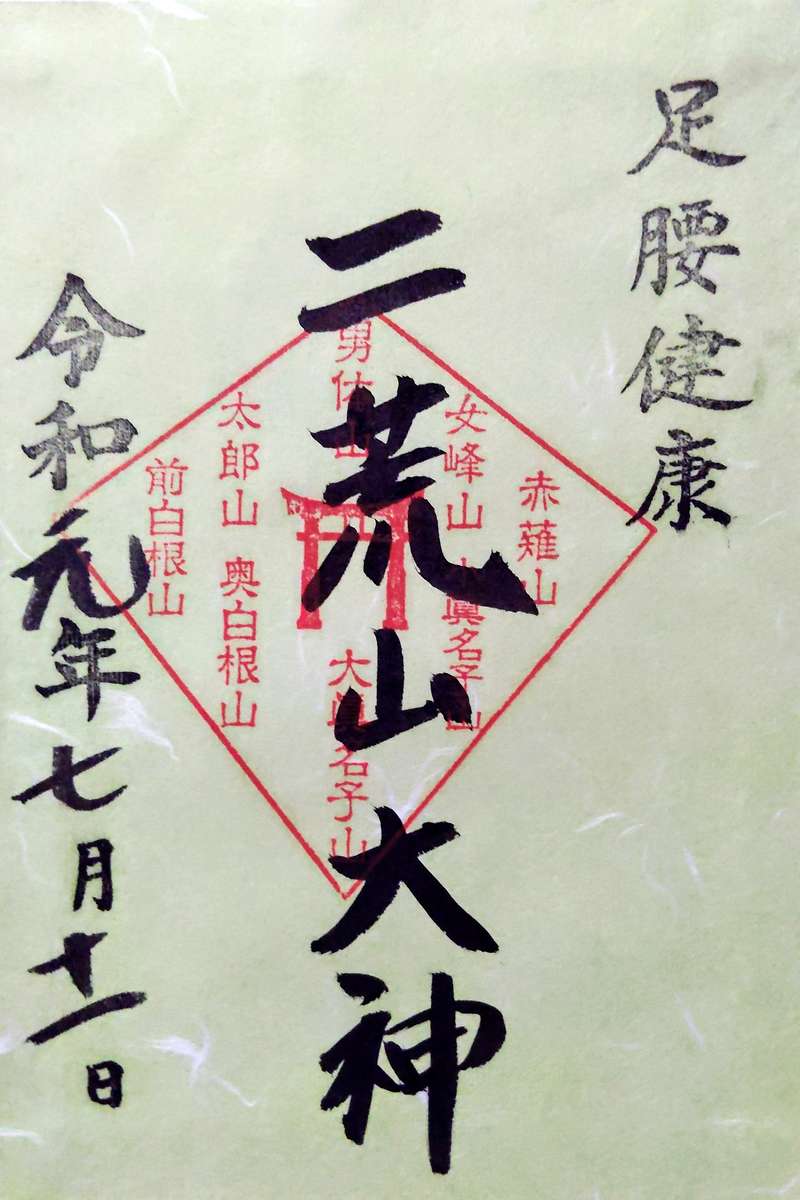 足腰健康
二荒山大神
赤薙山
女峰山 小眞名子山
男体山
大眞名子山
太郎山 奥白根山
前白根山
令和元年七月十一日